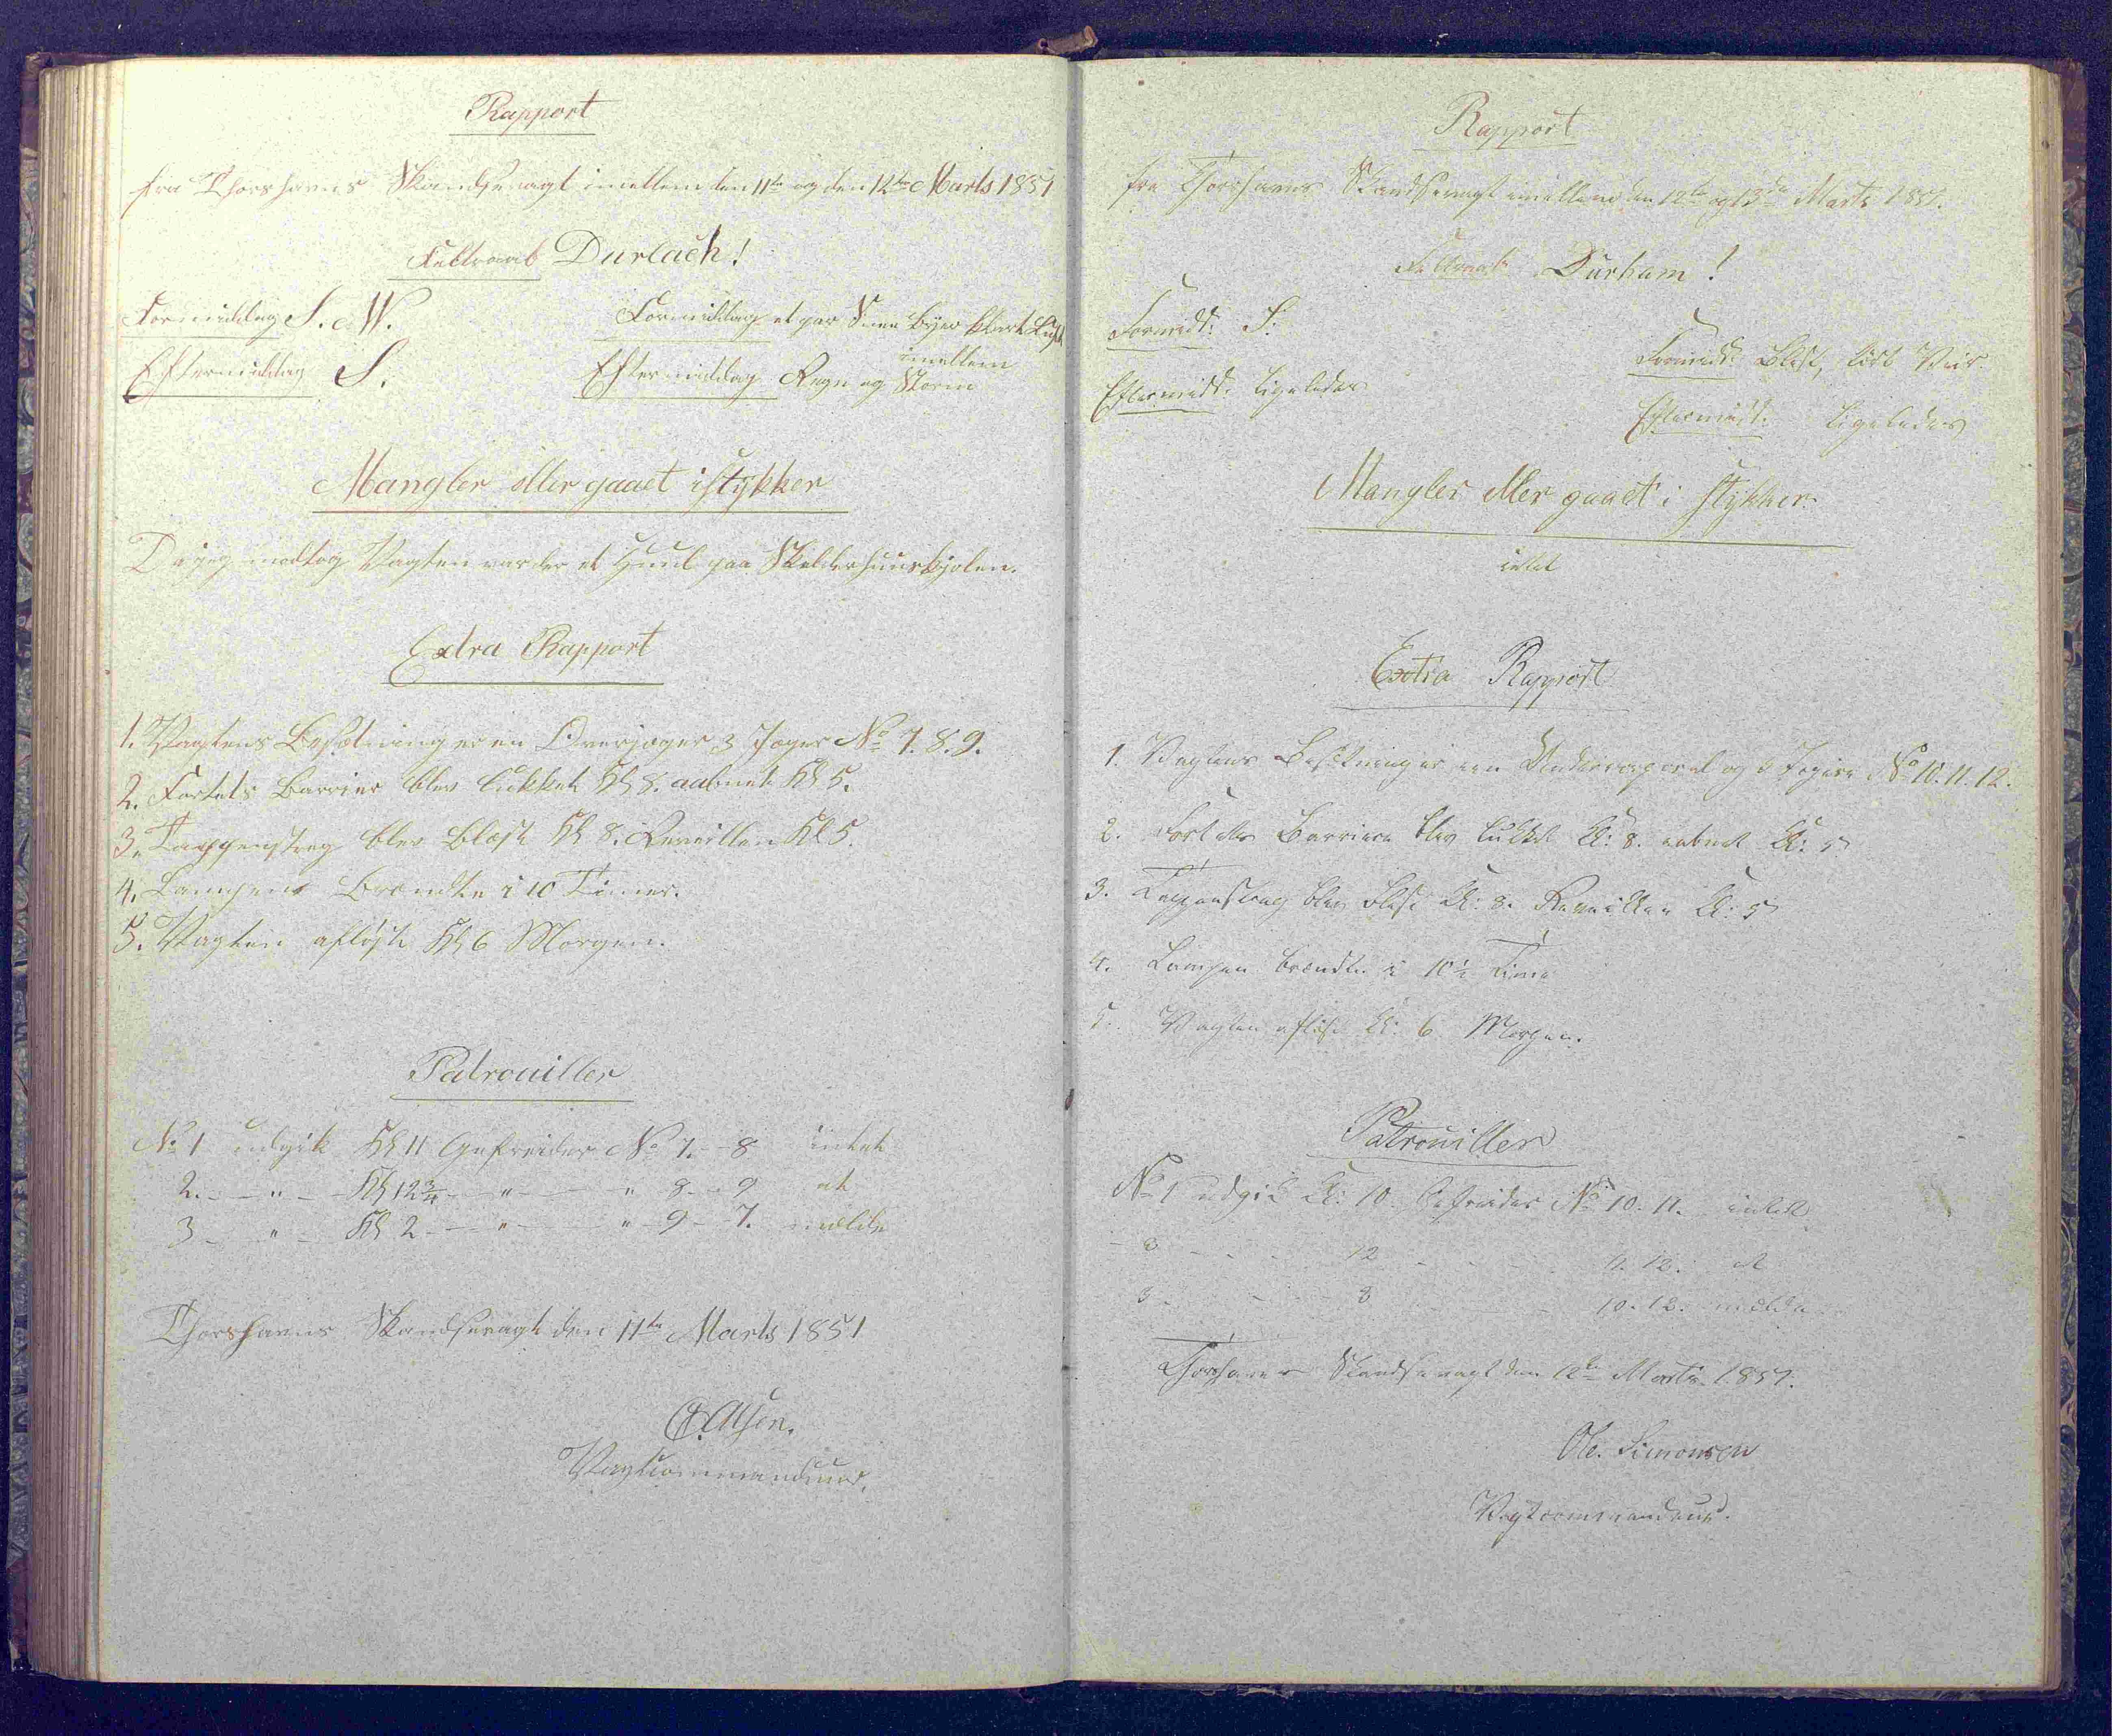 Rapport
fra Thorshavns Skandsevagt imellem den 11te og den 12te Marts 1851
Feltraab Durlach!
Formiddag S.W.
Eftermiddag S.
Formiddag et par Snee byer klart Luft
imellem
Eftermiddag Regn og Storm
Mangler eller gaaet istykker
Da jeg modtog Vagten var der et Huul paa Skilderhuuskjolen.
Extra Rapport
1. Vagtens Besætning er en Overjæger, 3 Jæger No 7. 8. 9.
2. Fortets Barrier blev lukket Kl 8. aabnet Kl 5.
3. Tappenstreg blev blæst Kl 8. Reveillen Kl 5.
4. Lampen Brændte i 10 Timer.
5. Vagten afløst Kl 6 Morgen.
Patrouiller
No 1 udgik Kl 11 Gefreider No 7. - 8 intet
2. - " - Kl 12 3/4 - " - " 8 - 9 at
3 - " - Kl 2 - " - " 9 - 7. melde
Thorshavns Skandsevagt den 11te Marts 1851
Olsen.
Vagtcommandeur.
Rapport
fra Thorshavns Skandsevagt imellem den 12te og 13de Marts 1851.
Feltraab Durham!
Formidd: S:
Eftermidd: ligeledes
Formidd: Blæst, Veir.
Eftermidd: ligeledes
Mangler eller gaaet i stykker.
intet
Extra Rapport
1. Vagtens Besætning er een Undercorporal og 3 Jægere No 10. 11. 12.
2. Fortets Barriere blev lukket Kl: 8. aabnet Kl: 5
3. Tappenstreg blev blæst Kl: 8. Reveillen Kl: 5
4. Lampen brændte i 10½ Time
5. Vagten afløst Kl: 6 Morgen.
Patrouiller
No 1 udgik Kl: 10. Gefreider No 10. 11. intet
- 2 - - - 12 - - - 11. 12. at
3 - - - 3 - - 10. 12. melde
Thorshavns Skandsevagt den 12te Marts 1851.
Ole. Simonsen
Vagtcommandeur.